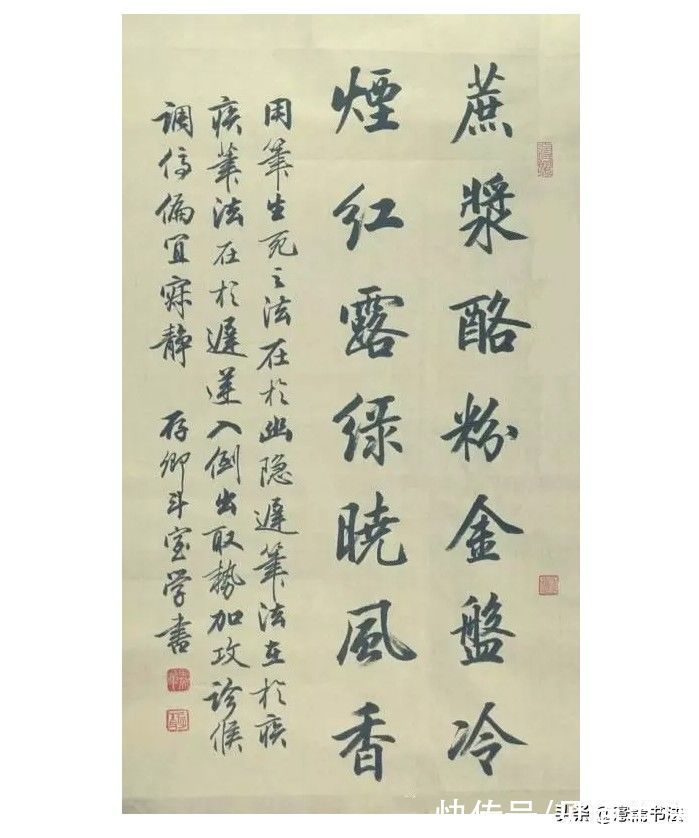 蔗漿酪粉金盤冷
煙紅露綠曉風香
用筆生死之法在於幽隱遲筆法在於疾
疾筆法在於遲逆入倒出取勢加攻診候
調停偏宜寂靜 存卿斗室学書
快传号/
头条@
书法